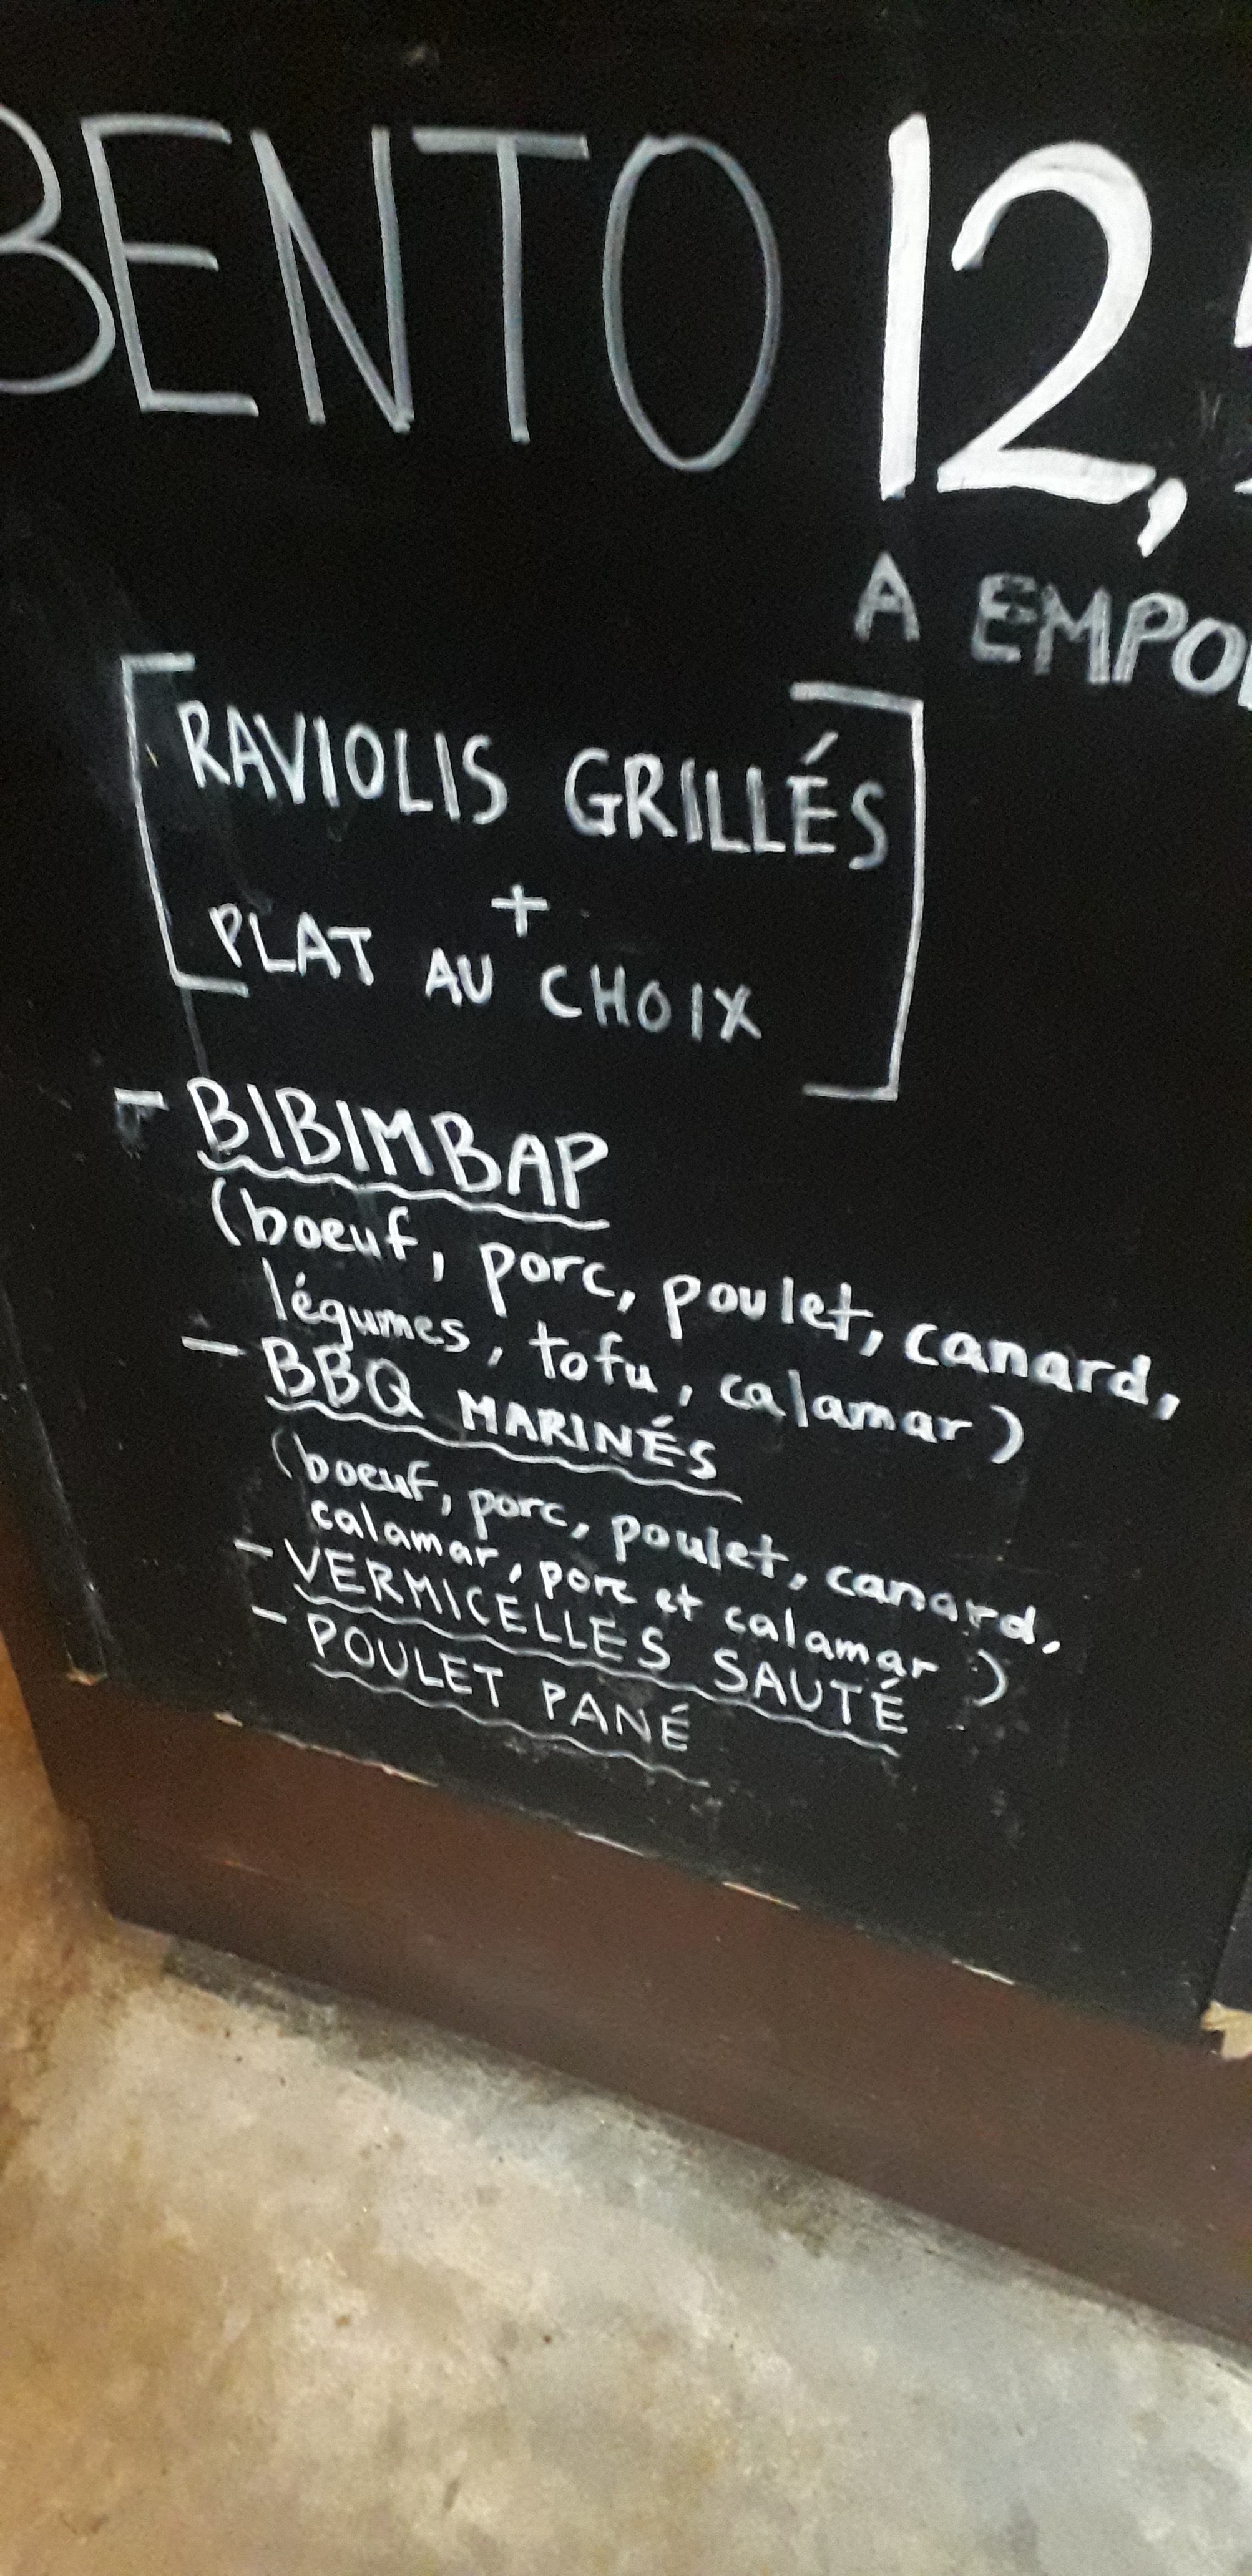 BENTO 12,
A EMPO
RAVIOLIS GRILLÉS
+
PLAT AU CHOIX
- BIBIMBAP
(boeuf, porc, poulet, canard,
légumes, tofu, calamar)
- BBQ MARINÉS
(boeuf, porc, poulet, canard,
calamar, porc et calamar)
- VERMICÉLLES SAUTÉ
- POULET PANÉ